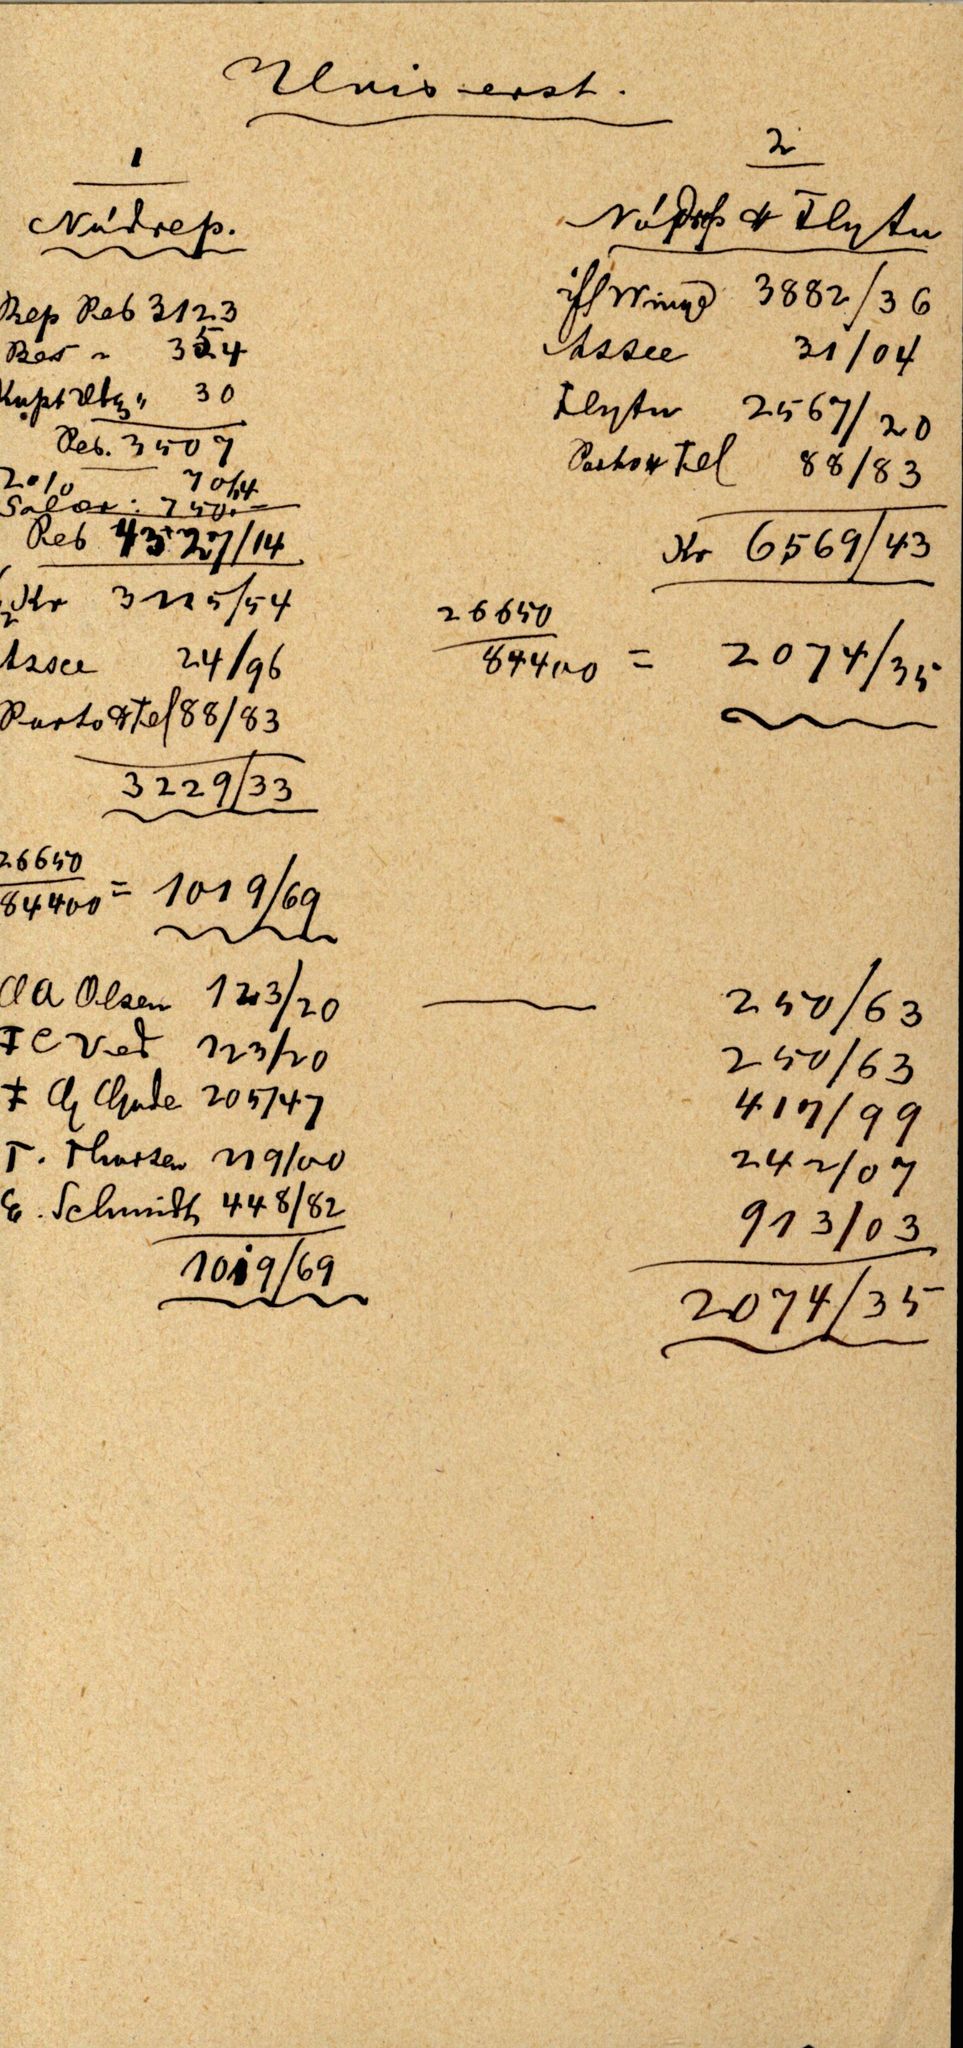 erst.
1
Nødrep.
Rep Reb 3123
Bes " 354
30
Reb. 3507
2% 70/14
Salær: 750.—
Reb 4327/14
Kr 3115/54
Assce 24/96
Porto & Tel 88/83
3229/33
26650
84400 = 1019/69
O A Olsen 123/20
F C Ved 123/20
F G Gade 205/47
T. Thorsen 119/00
E. Schmidt 448/82
1019/69
2
Nødrep & Flytn
3882/36
Assce 31/04
Flytn 2567/20
Porto & Tel 88/83
Kr 6569/43
26650
84400 = 2074/35
250/63
250/63
417/99
242/07
913/03
2074/35